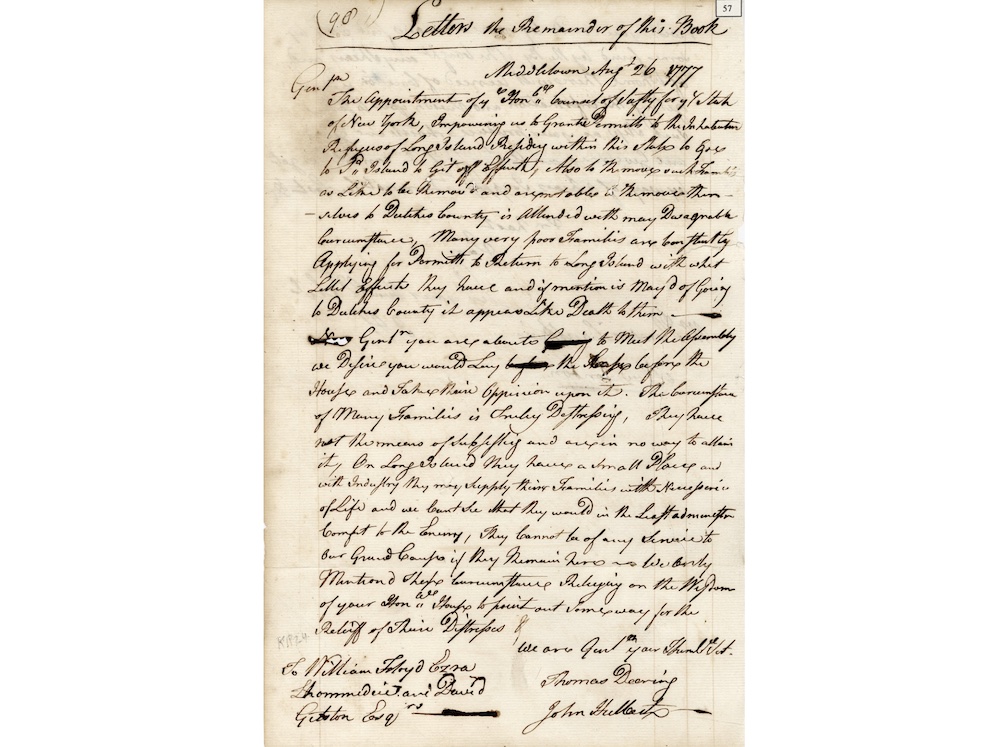 57
(98)
Letters the Remainder of this Book
Middletown Augt 26 1777
Gentm
The Appointment of ye Honble Counsel of Safty for ye State
of New York, Impowring us to Grante Permitts to the Inhabitan
Refugus of Long Island Residig within this State to Goe
to Id Island to Git off Effects, Also to Remove such Families
as Like to be Remov'd and are not able to Remove them
selves to Dutches County is Attended with may Disagrable
Curcumstance, Many very poor Families are Constantly
Applying for Permitts to Return to Long Island with what
Littel Effects they have and if mention is May'd of Going
to Dutches County it appears Like Death to them
Gentm you are about to Meet the Assembly
we Desire you would Lay the before the
House and Take their Oppinion upon it. The Curcumstan
of Many Families is Truley Distressing, They have
not the means of Subsisting and are in no way to attain
it, On Long Island they have a Small Place and
with Industry they may Supply their Families with Necesserie
of Life and we Cant See that they would in the Least administer
Comfit to the Enemy, They Cannot be of any Service to
Our Grand Cause if they Remain here We Only
Mention'd These Curcumstance Relieying on the Wisdom
of your Honble House to point out Some way for the
Releiff of Their Distresses
We are Gentm your Humle Set.
To William Floyd Ezra
Lhommedieu and David
Gelston Esqrs
Thomas Deering
John Hulbert